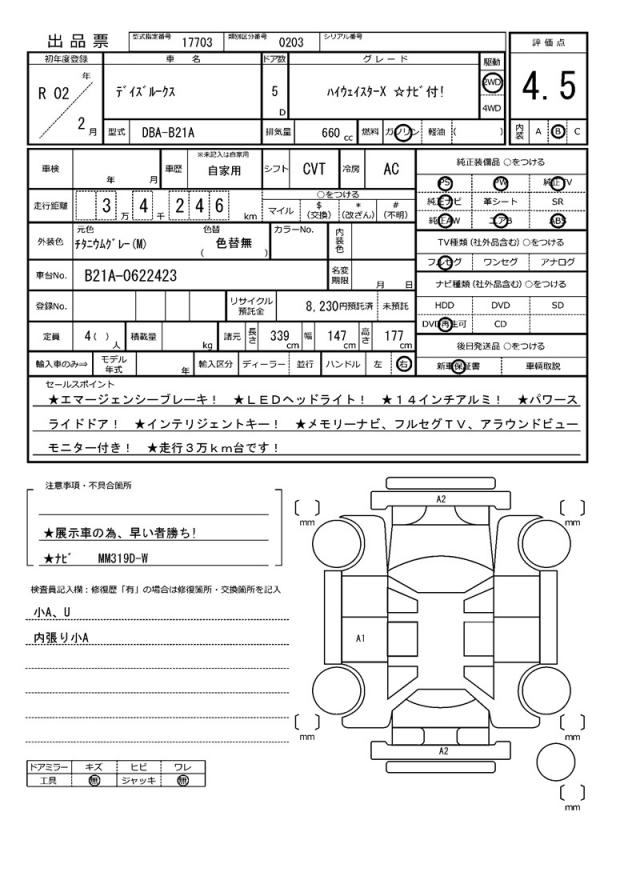 出品票 型式指定番号 17703 類別区分番号 0203 シリアル番号
初年度登録 車名 ドア数 グレード 駆動 評価点
R 02 年 2 月 ﾃﾞｲｽﾞﾙｰｸｽ 5 D ﾊｲｳｪｲｽﾀｰX ☆ﾅﾋﾞ付! 2WD 4WD 4.5
型式 DBA-B21A 排気量 660 cc 燃料 ガソリン 軽油 ( ) 内装 A B C
車検 年 月 車歴 ※未記入は自家用 自家用 シフト CVT 冷房 AC
純正装備品 ○をつける
PS PW 純正TV
純正ナビ 革シート SR
純正AW エアB ABS
走行距離 3 万 4 千 2 4 6 km
○をつける
マイル $ (交換) * (改ざん) # (不明)
TV種類(社外品含む) ○をつける
フルセグ ワンセグ アナログ
外装色 元色 ﾁﾀﾆｳﾑｸﾞﾚｰ(M) 色替 ( 色替無 ) カラーNo. 内装色
車台No. B21A-0622423 名変期限 月 日
ナビ種類(社外品含む) ○をつける
HDD DVD SD
DVD再生可 CD
登録No. リサイクル預託金 8,230円預託済 未預託
定員 4( ) 人 積載量 kg 諸元 長さ 339 cm 幅 147 cm 高さ 177 cm
後日発送品 ○をつける
新車保証書 車輌取説
輸入車のみ⇒ モデル年式 年 輸入区分 ディーラー 並行 ハンドル 左 右
セールスポイント
★エマージェンシーブレーキ! ★LEDヘッドライト! ★14インチアルミ! ★パワース
ライドドア! ★インテリジェントキー! ★メモリーナビ、フルセグTV、アラウンドビュー
モニター付き! ★走行3万km台です!
注意事項・不具合箇所
★展示車の為、早い者勝ち!
★ﾅﾋﾞ MM319D-W
検査員記入欄:修復歴「有」の場合は修復箇所・交換箇所を記入
小A、U
内張り小A
ドアミラー キズ ヒビ ワレ
工具 無 ジャッキ 無
A2
[ ] mm [ ] mm
A1
[ ] mm [ ] mm
A2
[ ] mm